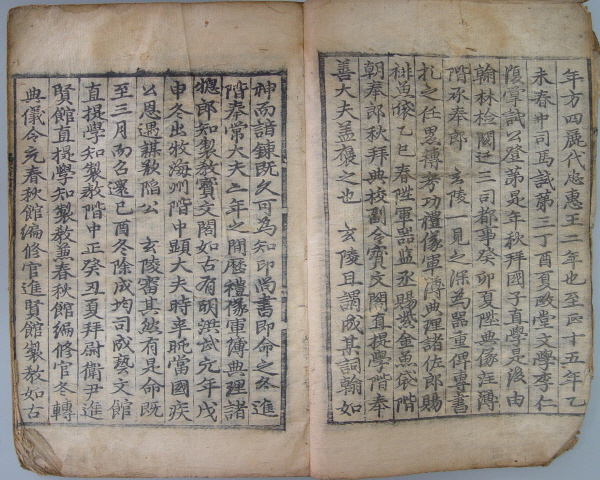 年方四歷代忠惠王二年也至正十五年乙
未春中司馬試第三丁酉夏政堂文學李仁
復掌試公登第是年秋拜國子直學是後由
翰林檢閱迁三司都事癸卯夏陞典儀注簿
階承奉郎 玄陵一見之深為器重俾專書
札之任累轉考功禮儀軍簿典理諸佐郎賜
緋魚袋乙巳春陞軍器監丞賜紫金魚袋階
朝奉郎秋拜典校副令寶文閣直提學階奉
善大夫盖褒之也 玄陵且謂成某詞翰如
神而諳鍊既久可為知印尚書即命之冬進
階奉常大夫二年之閒歷禮儀軍簿典理諸
緫郎知製教寶文閣如古有明洪武元年戊
申冬出牧海州階中顯大夫時辛旽當國疾
公恩遇謀欲陷公 玄陵審其然有是命既
至三月而召還己酉冬除成均司成藝文館
直提學知製教階中正癸丑夏拜尉衛尹進
賢館直提學知製教兼春秋館編修官冬轉
典儀令充春秋館編修官進賢館製教如古